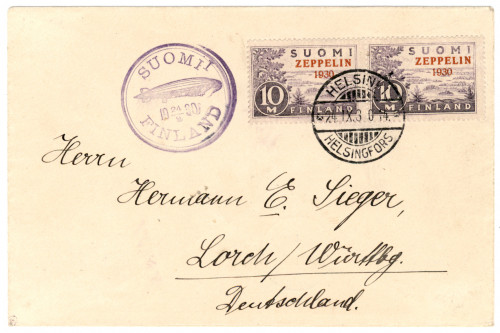 SUOMI
FINLAND
SUOMI
ZEPPELIN
1930
10 M FINLAND
SUOMI
ZEPPELIN
1930
10 M FINLAND
HELSINKI
HELSINGFORS
Herrn
Hermann E. Sieger,
Lorch/Württbg.
Deutschland.